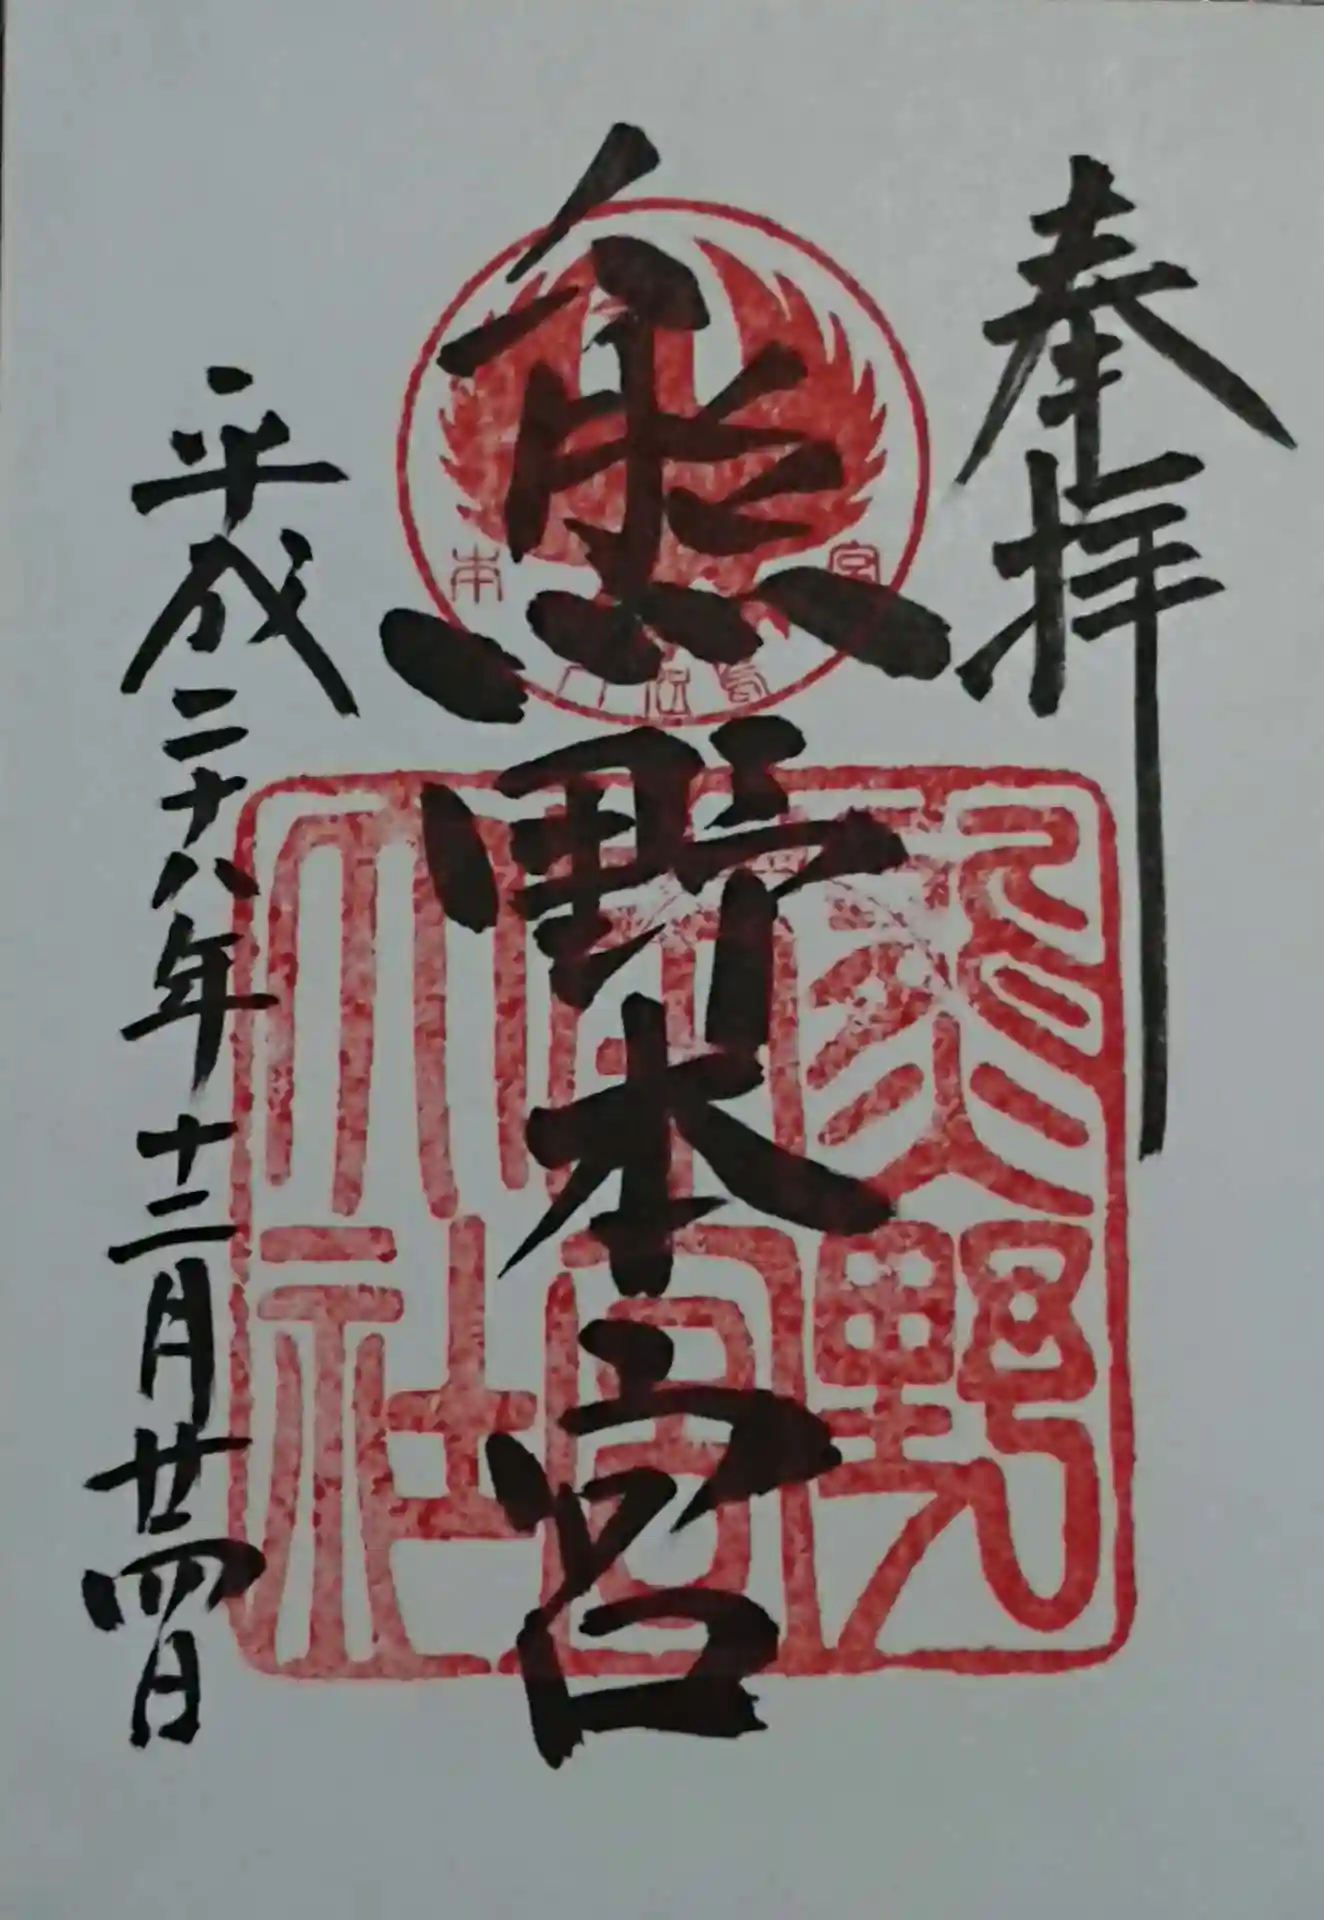 奉拝
熊野本宮
熊野
本宮
大社
平成二十八年十二月廿四日